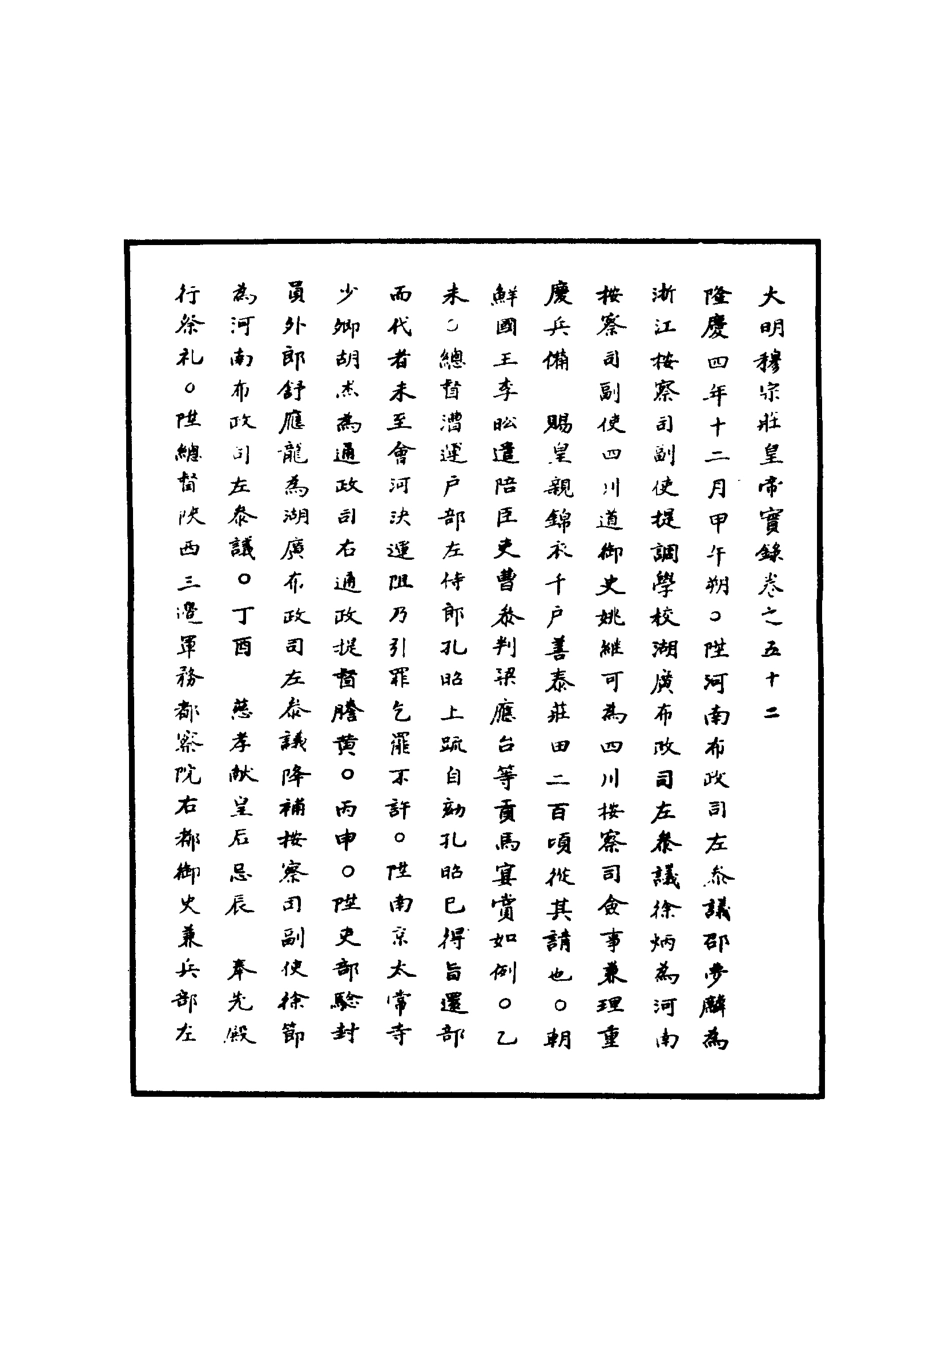 大明穆宗莊皇帝實錄卷之五十二
隆慶四年十二月甲午朔○陞河南布政司左叅議邵夢麟為
浙江按察司副使提調學校湖廣布政司左叅議徐炳為河南
按察司副使四川道御史姚繼可為四川按察司僉事兼理重
慶兵備　賜皇親錦衣千戶善泰莊田二百頃從其請也○朝
鮮國王李昖遣陪臣吏曹叅判梁應台等貢馬宴賞如例○乙
未○總督漕運戶部左侍郎孔昭上疏自劾孔昭已得旨還部
而代者未至會河決運阻乃引罪乞罷不許○陞南京太常寺
少卿胡杰為通政司右通政提督謄黃○丙申○陞吏部驗封
員外郎舒應龍為湖廣布政司左叅議降補按察司副使徐節
為河南布政司左叅議○丁酉　慈孝献皇后忌辰　奉先殿
行祭礼○陞總督陜西三邊軍務都察院右都御史兼兵部左